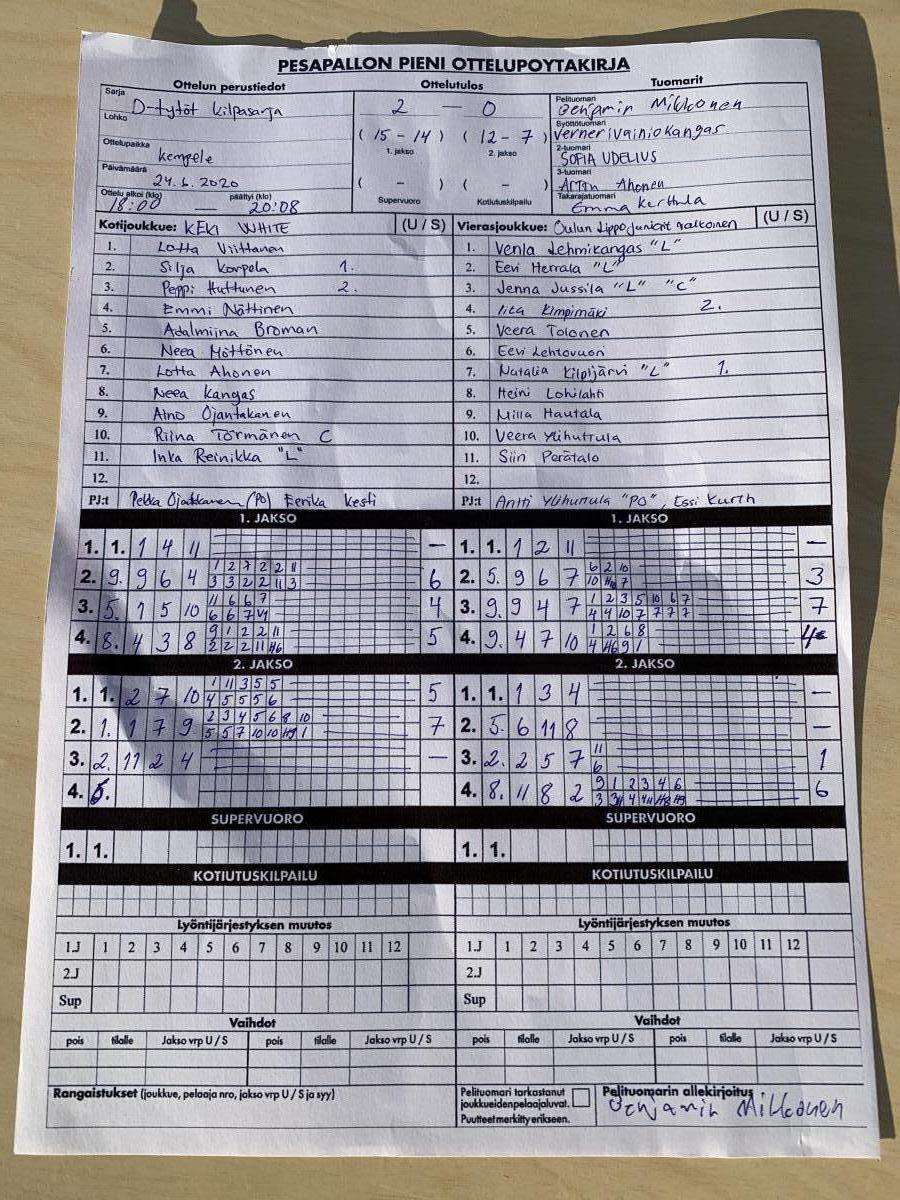 PESAPALLON PIENI OTTELUPOYTAKIRJA
Ottelun perustiedot Ottelutulos Tuomarit
Sarja D-tytöt kilpasarja
Lohko
Ottelupaikka Kempele
Päivämäärä 24.6.2020
Ottelu alkoi (klo) päättyi (klo)
18:00 — 20:08
2 — 0
( 15 - 14 ) ( 12 - 7 )
1. jakso 2. jakso
( - ) ( - )
Supervuoro Kotiutuskilpailu
Pelituomari Benjamin Mikkonen
Syöttötuomari Verneri Vainiokangas
2-tuomari SOFIA UDELIUS
3-tuomari Ahonen
Takarajatuomari Emma Kerttula
Kotijoukkue: KEKI WHITE (U / S)
1. Lotta Viittanen
2. Silja Korpela 1.
3. Peppi Huttunen 2.
4. Emmi Nättinen
5. Adalmiina Broman
6. Neea Möttönen
7. Lotta Ahonen
8. Neea Kangas
9. Aino Ojantakanen
10. Riina Törmänen C
11. Inka Reinikka "L"
12.
PJ:t Pekka (PO) Eerika Kesti
Vierasjoukkue: Oulun Lippo Juniorit Valkonen (U / S)
1. Venla Lehmikangas "L"
2. Eevi Herrala "L"
3. Jenna Jussila "L" "C"
4. Iita Kimpimäki 2.
5. Veera Tolonen
6. Eevi Lehtovuori
7. Natalia Kilpijärvi "L" 1.
8. Heini Lohilahti
9. Milla Hautala
10. Veera Ylihuttula
11. Siiri Perätalo
12.
PJ:t Antti Ylihuttula "PO", Essi Kurth
1. JAKSO
1. 1. 1 4 11 —
2. 9. 9 6 4 1 2 7 2 2 11 6
3 3 2 2 11 3
3. 5. 1 5 10 11 6 6 7 4
6 6 7
4. 8. 4 3 8 9 1 2 2 11 5
2 2 2 11
1. JAKSO
1. 1. 1 2 11 —
2. 5. 9 6 7 6 2 10 3
10 7
3. 9. 9 4 7 1 2 3 5 10 6 7 7
4 4 10 7 7 7 7
4. 9. 4 7 10 1 2 6 8 4
4 9 1
2. JAKSO
1. 1. 2 7 10 1 11 3 5 5 5
4 5 5 5 6
2. 1. 1 7 9 2 3 4 5 6 8 10 7
5 5 7 10 10 1
3. 2. 11 2 4 —
4. 5.
2. JAKSO
1. 1. 1 3 4 —
2. 5. 6 11 8 —
3. 2. 2 5 7 11 1
6
4. 8. 11 8 2 9 1 2 3 4 6 6
3 4
SUPERVUORO SUPERVUORO
1. 1. 1. 1.
KOTIUTUSKILPAILU KOTIUTUSKILPAILU
Lyöntijärjestyksen muutos Lyöntijärjestyksen muutos
1.J 1 2 3 4 5 6 7 8 9 10 11 12 1.J 1 2 3 4 5 6 7 8 9 10 11 12
2.J 2.J
Sup Sup
Vaihdot Vaihdot
pois tilalle Jakso vrp U / S pois tilalle Jakso vrp U / S pois tilalle Jakso vrp U / S pois tilalle Jakso vrp U / S
Rangaistukset (joukkue, pelaaja nro, jakso vrp U / S ja syy)
Pelituomari tarkastanut
joukkueidenpelaajaluvat.
Puutteet merkitty erikseen.
Pelituomarin allekirjoitus
Benjamin Mikkonen